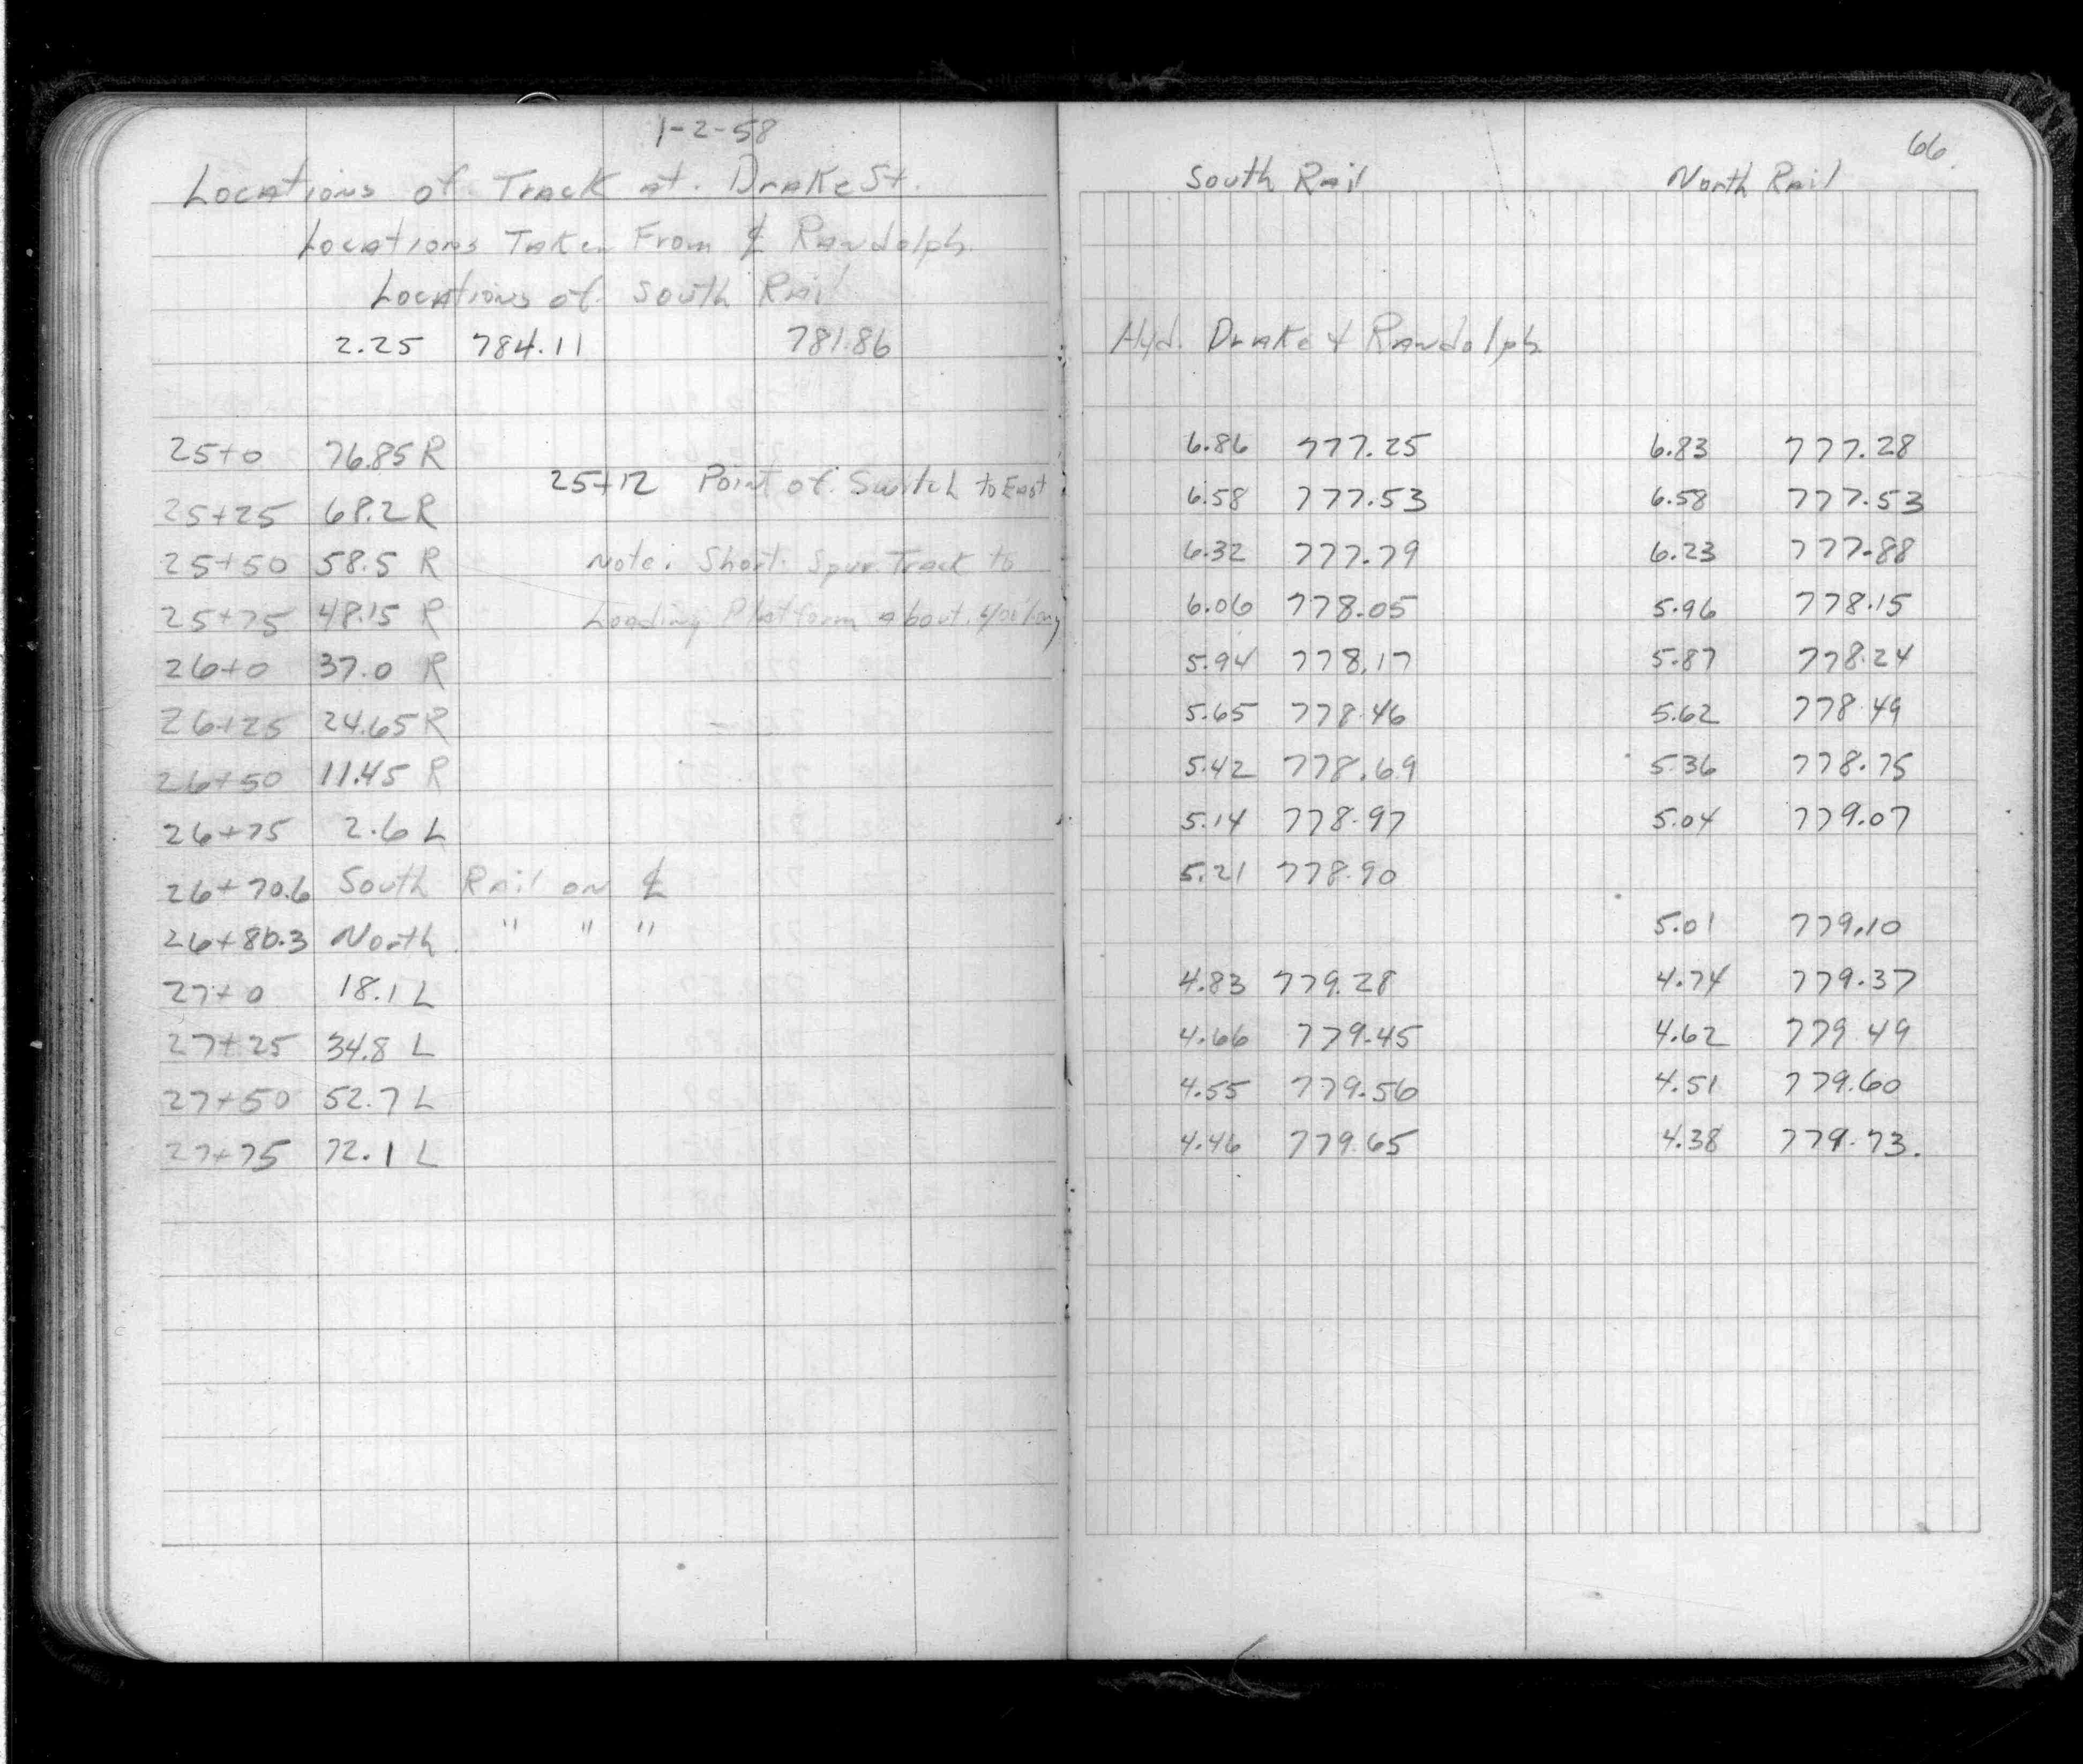 1-2-58
Locations of Track at. Drake St.
Locations Taken From ℄ Randolph.
Locations of South Rail
2.25 784.11 781.86
25+0 76.85 R
25+12 Point of Switch to East
25+25 68.2 R
25+50 58.5 R Note: Short Spur Track to
25+75 48.15 R Loading Platform about 400' long
26+0 37.0 R
26+25 24.65 R
26+50 11.45 R
26+75 2.6 L
26+70.6 South Rail on ℄
26+80.3 North " " "
27+0 18.1 L
27+25 34.8 L
27+50 52.7 L
27+75 72.1 L
66
South Rail North Rail
Hyd. Drake & Randolph
6.86 777.25 6.83 777.28
6.58 777.53 6.58 777.53
6.32 777.79 6.23 777.88
6.06 778.05 5.96 778.15
5.94 778.17 5.87 778.24
5.65 778.46 5.62 778.49
5.42 778.69 5.36 778.75
5.14 778.97 5.04 779.07
5.21 778.90
5.01 779.10
4.83 779.28 4.74 779.37
4.66 779.45 4.62 779.49
4.55 779.56 4.51 779.60
4.46 779.65 4.38 779.73.